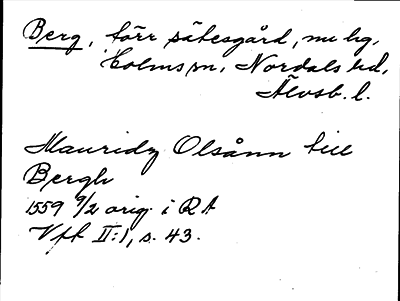 Berg, förr sätesgård, nu hg,
Holms sn, Nordals hd,
Älvsb. l.
Mauridz Olsånn till
Bergh
1559 9/2 orig. i RA
Vft II:1, s. 43.